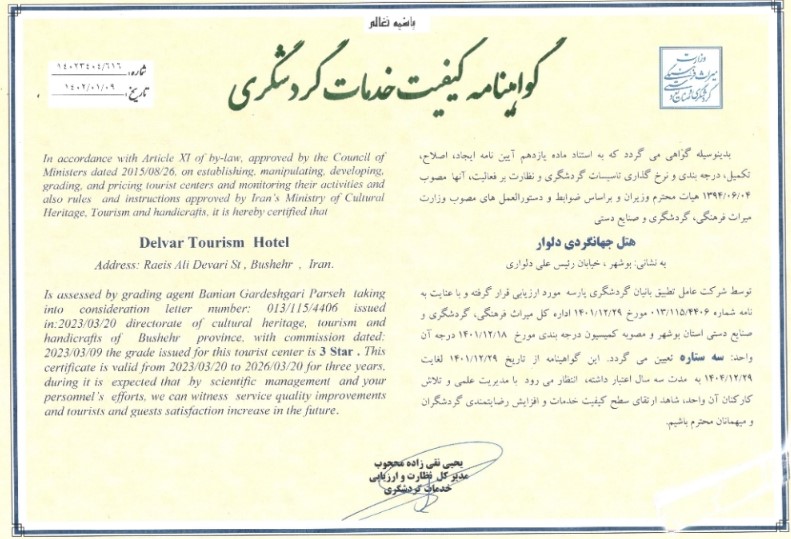 باسمه تعالی
گواهینامه کیفیت خدمات گردشگری
شماره: ۱۴۰۲۳۴۰۴/۶۱۶
تاریخ: ۱۴۰۲/۰۱/۰۹
وزارت
میراث فرهنگی
گردشگری و صنایع دستی
In accordance with Article XI of by-law, approved by the Council of
Ministers dated 2015/08/26, on establishing, manipulating, developing,
grading, and pricing tourist centers and monitoring their activities and
also rules and instructions approved by Iran's Ministry of Cultural
Heritage, Tourism and handicrafts, it is hereby certified that
Delvar Tourism Hotel
Address: Raeis Ali Devari St , Bushehr , Iran.
Is assessed by grading agent Banian Gardeshgari Parseh taking
into consideration letter number: 013/115/4406 issued
in:2023/03/20 directorate of cultural heritage, tourism and
handicrafts of Bushehr province, with commission dated:
2023/03/09 the grade issued for this tourist center is 3 Star . This
certificate is valid from 2023/03/20 to 2026/03/20 for three years,
during it is expected that by scientific management and your
personnel's efforts, we can witness service quality improvements
and tourists and guests satisfaction increase in the future.
بدینوسیله گواهی می گردد که به استناد ماده یازدهم آیین نامه ایجاد، اصلاح،
تکمیل، درجه بندی و نرخ گذاری تاسیسات گردشگری و نظارت بر فعالیت، آنها مصوب
۱۳۹۴/۰۶/۰۴ هیات محترم وزیران و براساس ضوابط و دستورالعمل های مصوب وزارت
میراث فرهنگی، گردشگری و صنایع دستی
هتل جهانگردی دلوار
به نشانی: بوشهر ، خیابان رئیس علی دلواری
توسط شرکت عامل تطبیق بانیان گردشگری پارسه مورد ارزیابی قرار گرفته و با عنایت به
نامه شماره ۰۱۳/۱۱۵/۴۴۰۶ مورخ ۱۴۰۱/۱۲/۲۹ اداره کل میراث فرهنگی، گردشگری و
صنایع دستی استان بوشهر و مصوبه کمیسیون درجه بندی مورخ ۱۴۰۱/۱۲/۱۸ درجه آن
واحد: سه ستاره تعیین می گردد. این گواهینامه از تاریخ ۱۴۰۱/۱۲/۲۹ لغایت
۱۴۰۴/۱۲/۲۹ به مدت سه سال اعتبار داشته، انتظار می رود با مدیریت علمی و تلاش
کارکنان آن واحد، شاهد ارتقای سطح کیفیت خدمات و افزایش رضایتمندی گردشگران
و میهمانان محترم باشیم.
یحیی نقی زاده محجوب
مدیر کل نظارت و ارزیابی
خدمات گردشگری